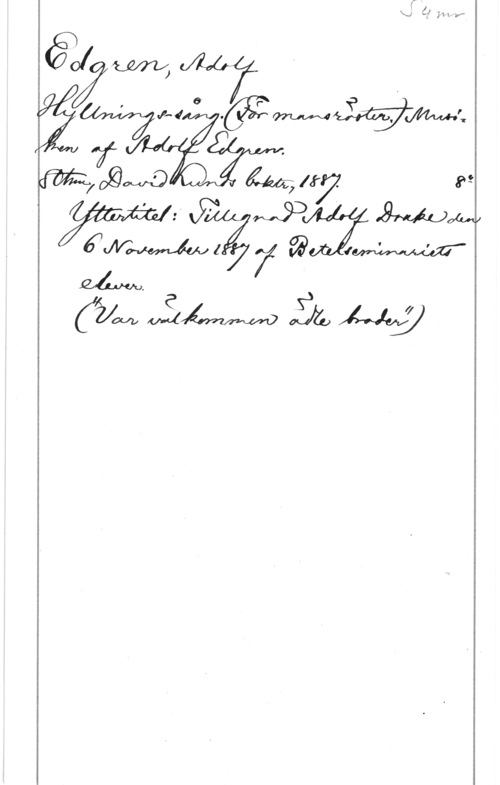 S 4 mr
Edgren, Adolf
Hyllningssång. (För mansröster.) Musi-
ken af Adolf Edgren.
Sthm, David Lunds boktr, 1887. 8°
Yttertitel: Tillegnad Adolf Drake den
6 November 1887 af Betelseminariets
elever.
("Var välkommen ädle broder")